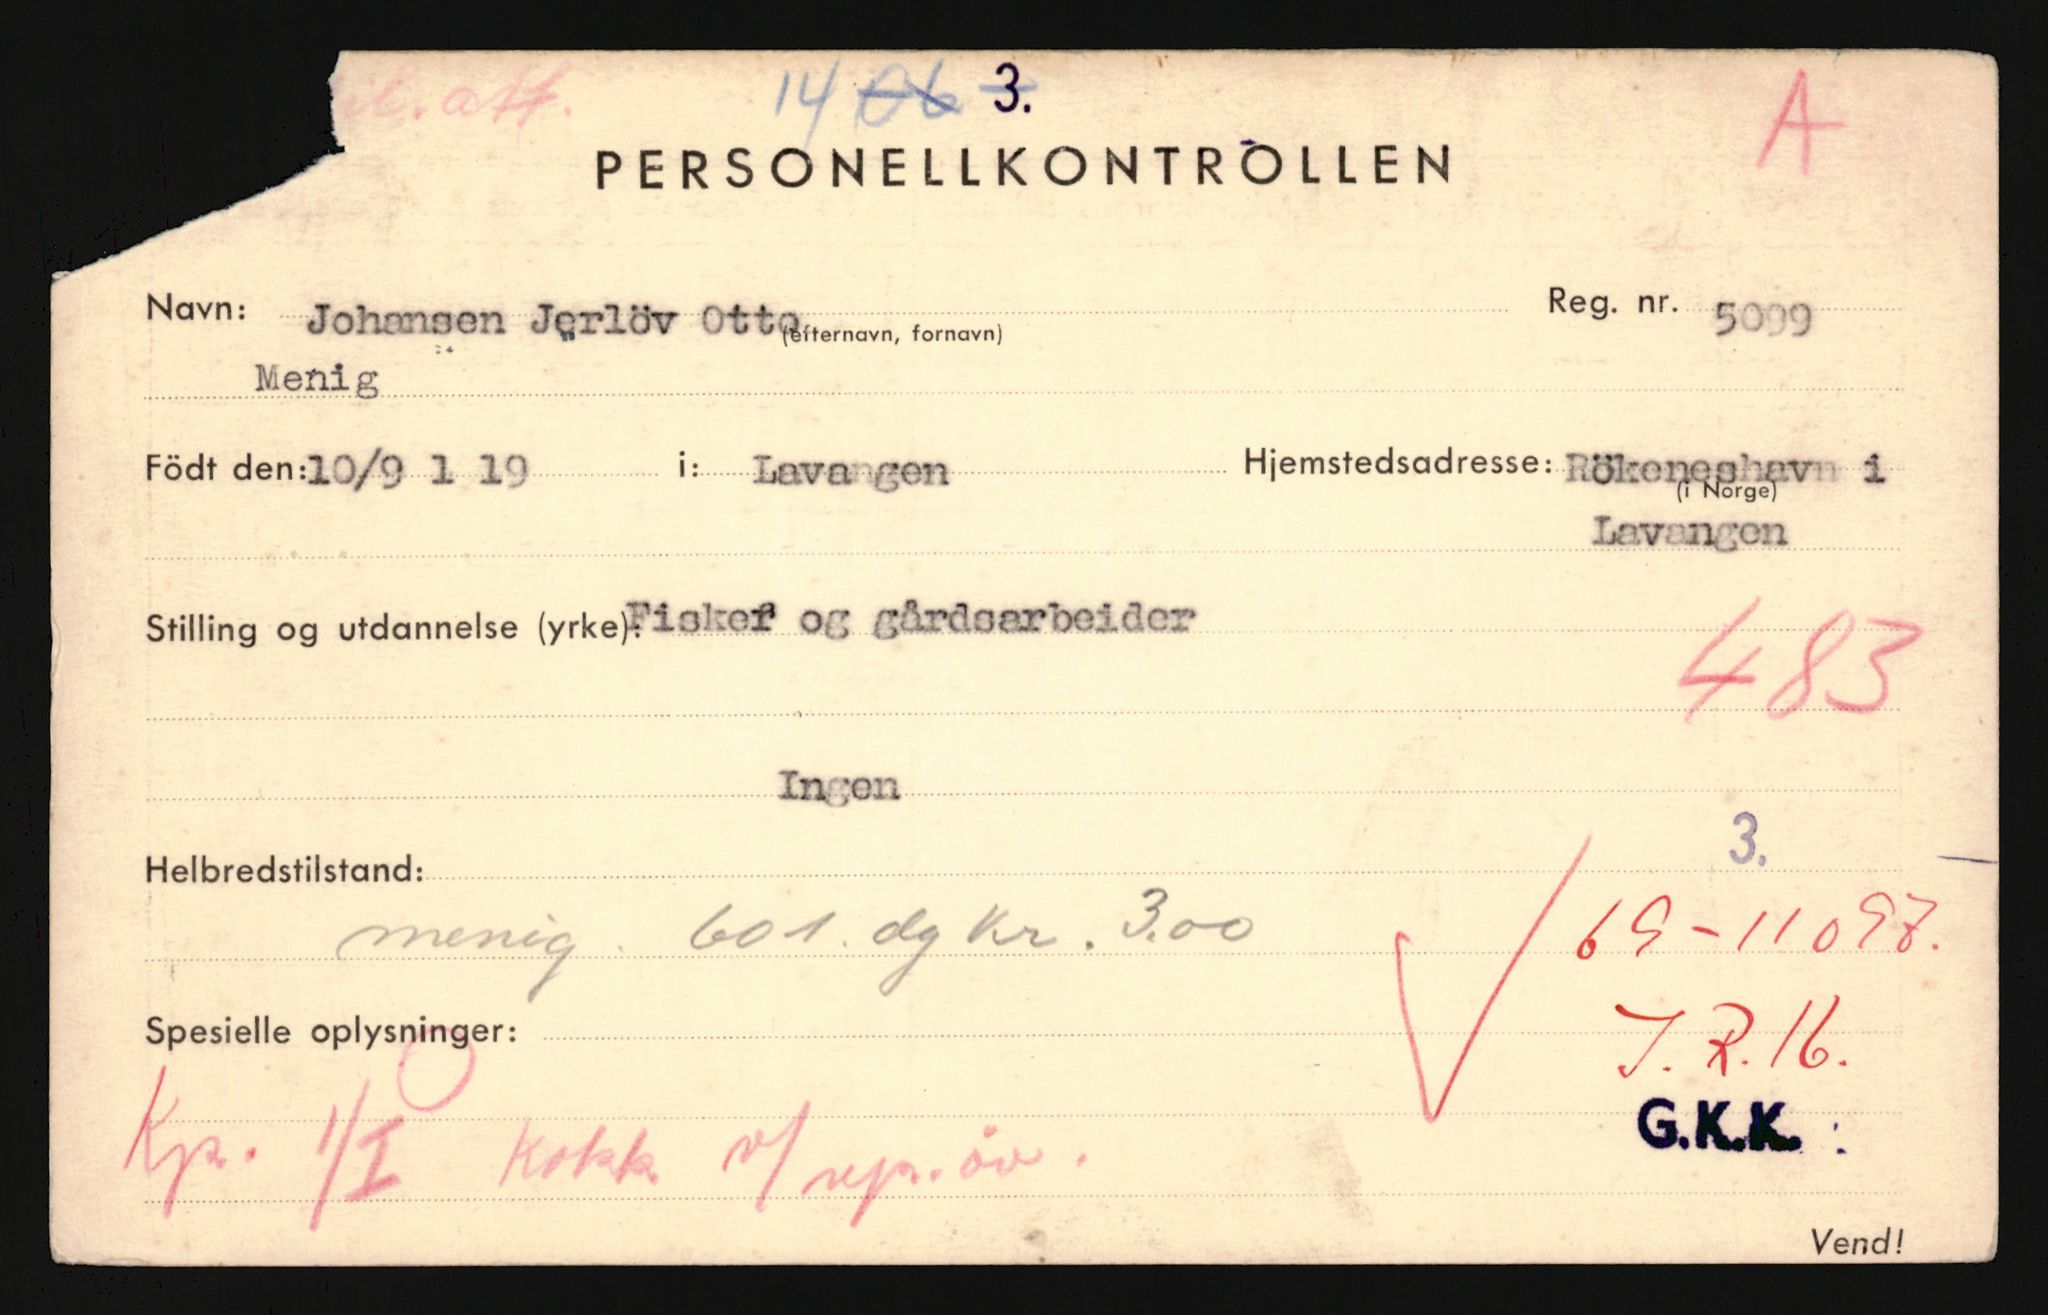 il. att. 14 06 3. A
PERSONELLKONTROLLEN
Navn: Johansen Jerlöv Otto (efternavn, fornavn) Reg. nr. 5099
Menig
Födt den: 10/9 1 19 i: Lavangen Hjemstedsadresse: Rökeneshavn i
(i Norge)
Lavangen
Stilling og utdannelse (yrke): Fisker og gårdsarbeider
483
Ingen
3.
Helbredstilstand:
menig. 601. dg kr. 3.00 69-11097.
Spesielle oplysninger: I.R.16.
G.K.K. :
Kp. 1/I Kokk v/rep.öv.
Vend!